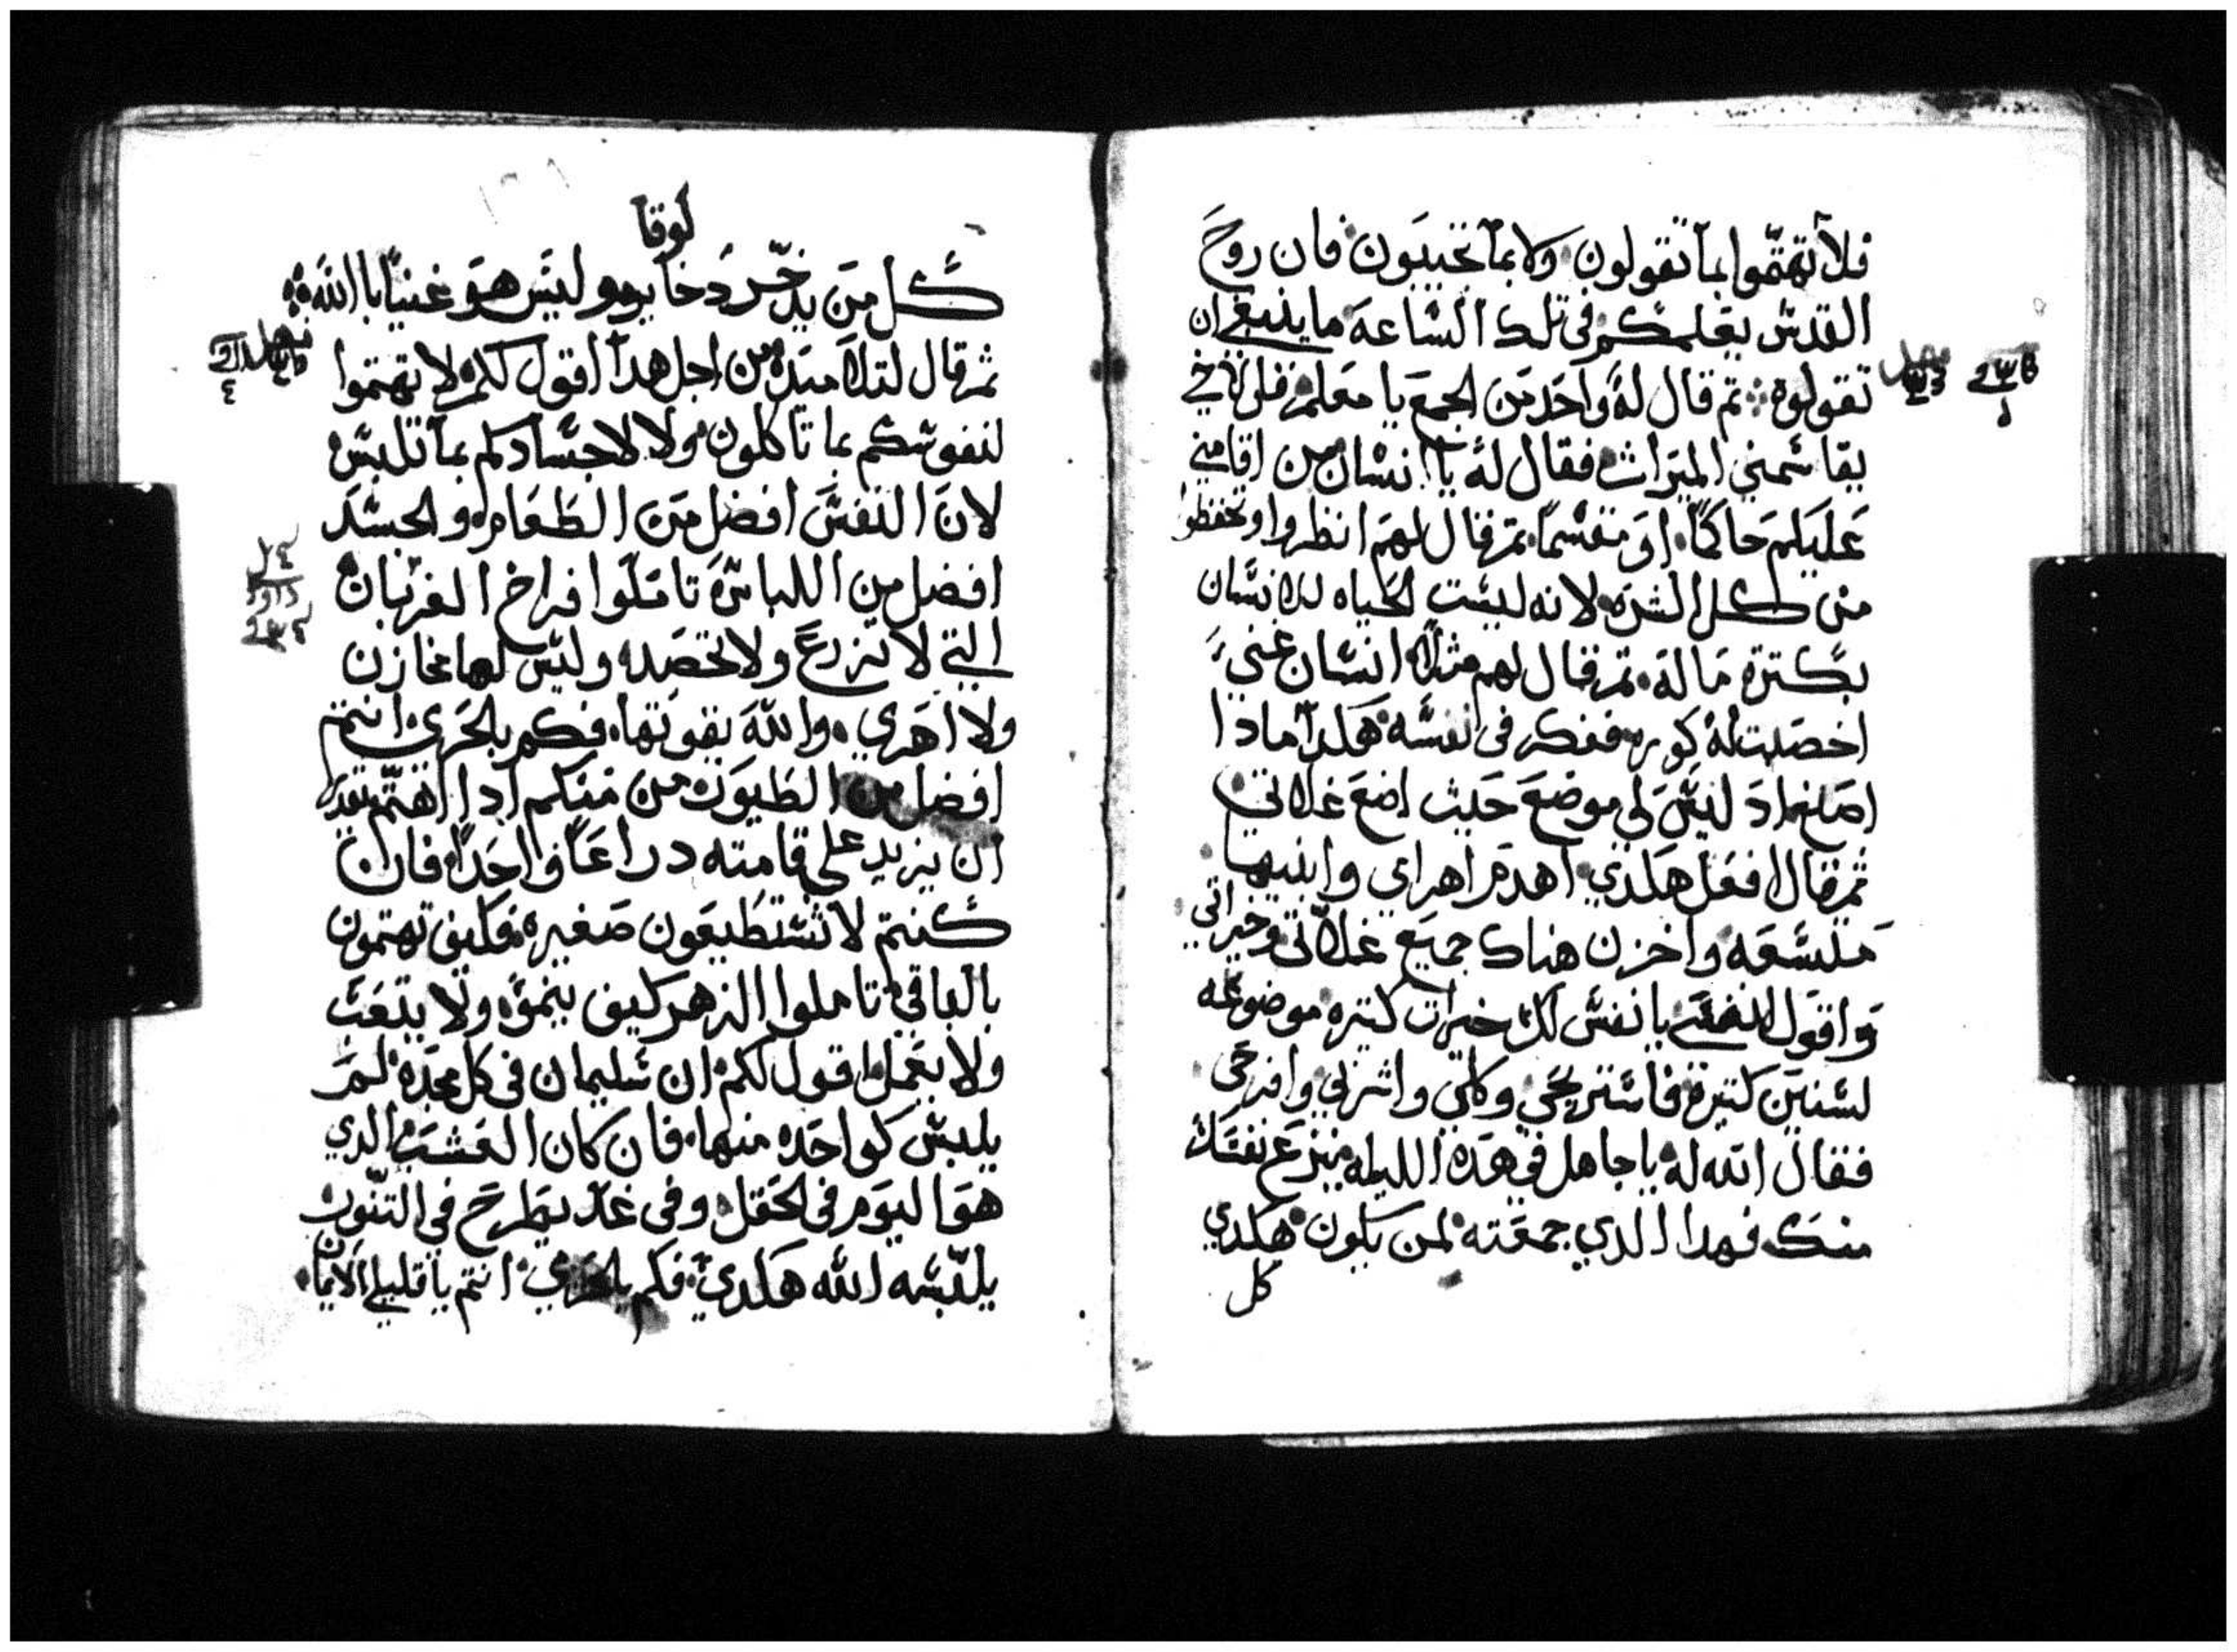 فلا تهتموا بما تقولون ولا بما تجيبون فان روح
القدس يعلمكم في تلك الساعة ما ينبغي ان
تقولوه ثم قال له واحد من الجمع يا معلم قل لاخي
يقاسمني الميراث فقال له يا انسان من اقامني
عليكم حاكمًا او مقسمًا ثم قال لهم انظروا وتحفظوا
من كل الشره لانه ليست الحياه للانسان
بكترة ماله ثم قال لهم مثلا انسان غني
اخصبت له كوره ففكر في نفسه هكدا مادا
اصنع اد ليس لي موضع حيث اضع غلاتي
ثم قال افعل هكدي اهدم اهراي وابنيها
متسعه واخزن هناك جميع غلاتي وخيراتي
واقول لنفسي يا نفس لك خيرات كتيره موضوعه
لسنين كتيرة فاستريحي وكلي واشربي وافرحي
فقال الله له يا جاهل في هده الليله تنزع نفسك
منك فهدا الدي جمعته لمن يكون هكدي
كل
لوقا
كل من يدخر دخاير وليس هو غنيًا بالله
ثم قال لتلاميده من اجل هدا اقول لكم لا تهتموا
لنفوسكم بما تاكلون ولا لاجسادكم بما تلبس
لان النفس افضل من الطعام والجسد
افضل من اللباس تاملوا فراخ الغربان
التي لا تزرع ولا تحصد وليس لها مخازن
ولا اهري والله يقوتها فكم بالحري انتم
افضل من الطيور من منكم ادا اهتم يقدر
ان يزيد علي قامته دراعًا واحدًا فان
كنتم لا تستطيعون صغيره فكيف تهتمون
بالباقي تاملوا الزهر كيف ينمو ولا يتعب
ولا يعمل اقول لكم ان سليمان في كل مجده لم
يلبس كواحده منها فان كان العشب الدي
هو اليوم في الحقل وفي غد يطرح في التنور
يلبسه الله هكدي فكم بالحري انتم يا قليلي الايمان